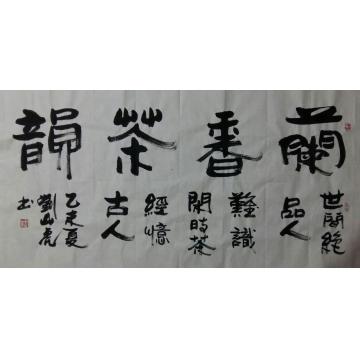 蘭香茶韻
世間絕
品人
難識
閑時茶
經憶
古人
乙未夏
劉山虎
书